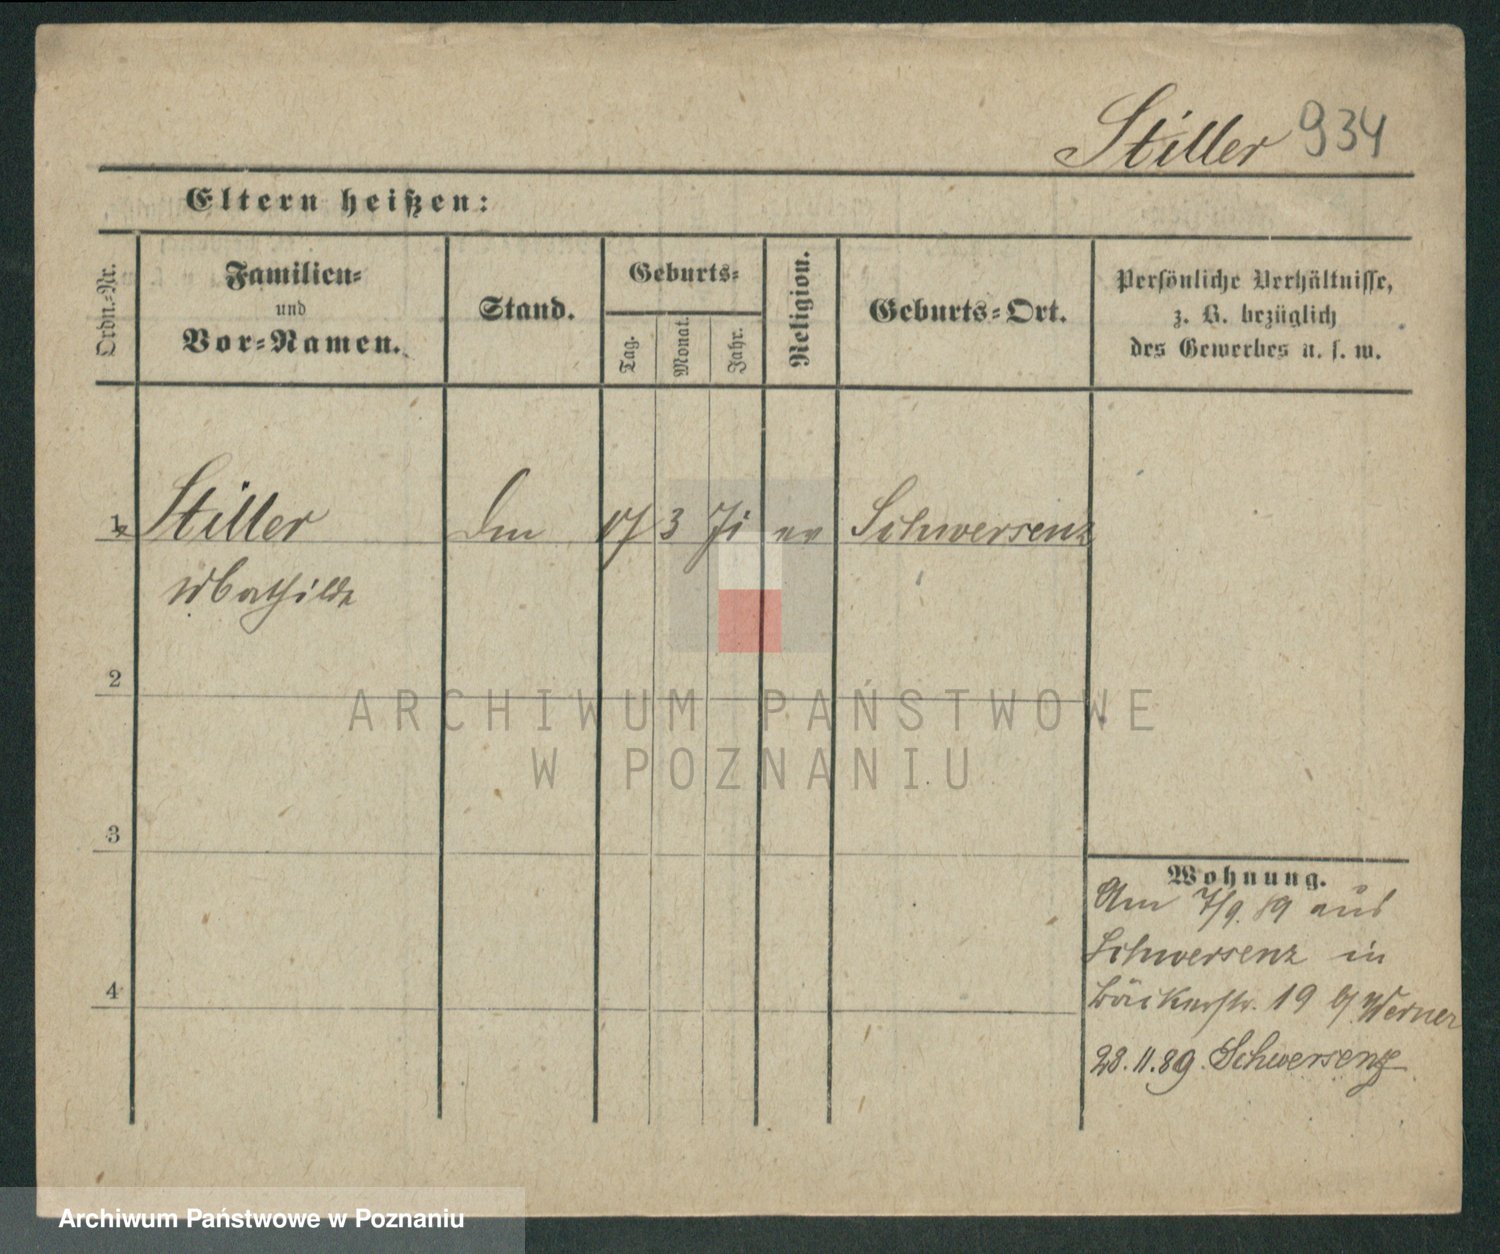 Stiller 934
Eltern heißen:
Ordn.=Nr.
Familien=
und
Vor=Namen.
Stand.
Geburts=
Tag.
Monat.
Jahr.
Religion.
Geburts=Ort.
Persönliche Verhältnisse,
z. B. bezüglich
des Gewerbes u. s. w.
1 Stiller 17 3 71 ev Schwersenz
Mathilde
2
3
4
Wohnung.
Am 7/9. 89 aus
Schwersenz in
Bäckerstr. 19 b/ Werner
28.11.89 Schwersenz
ARCHIWUM PAŃSTWOWE
W POZNANIU
Archiwum Państwowe w Poznaniu